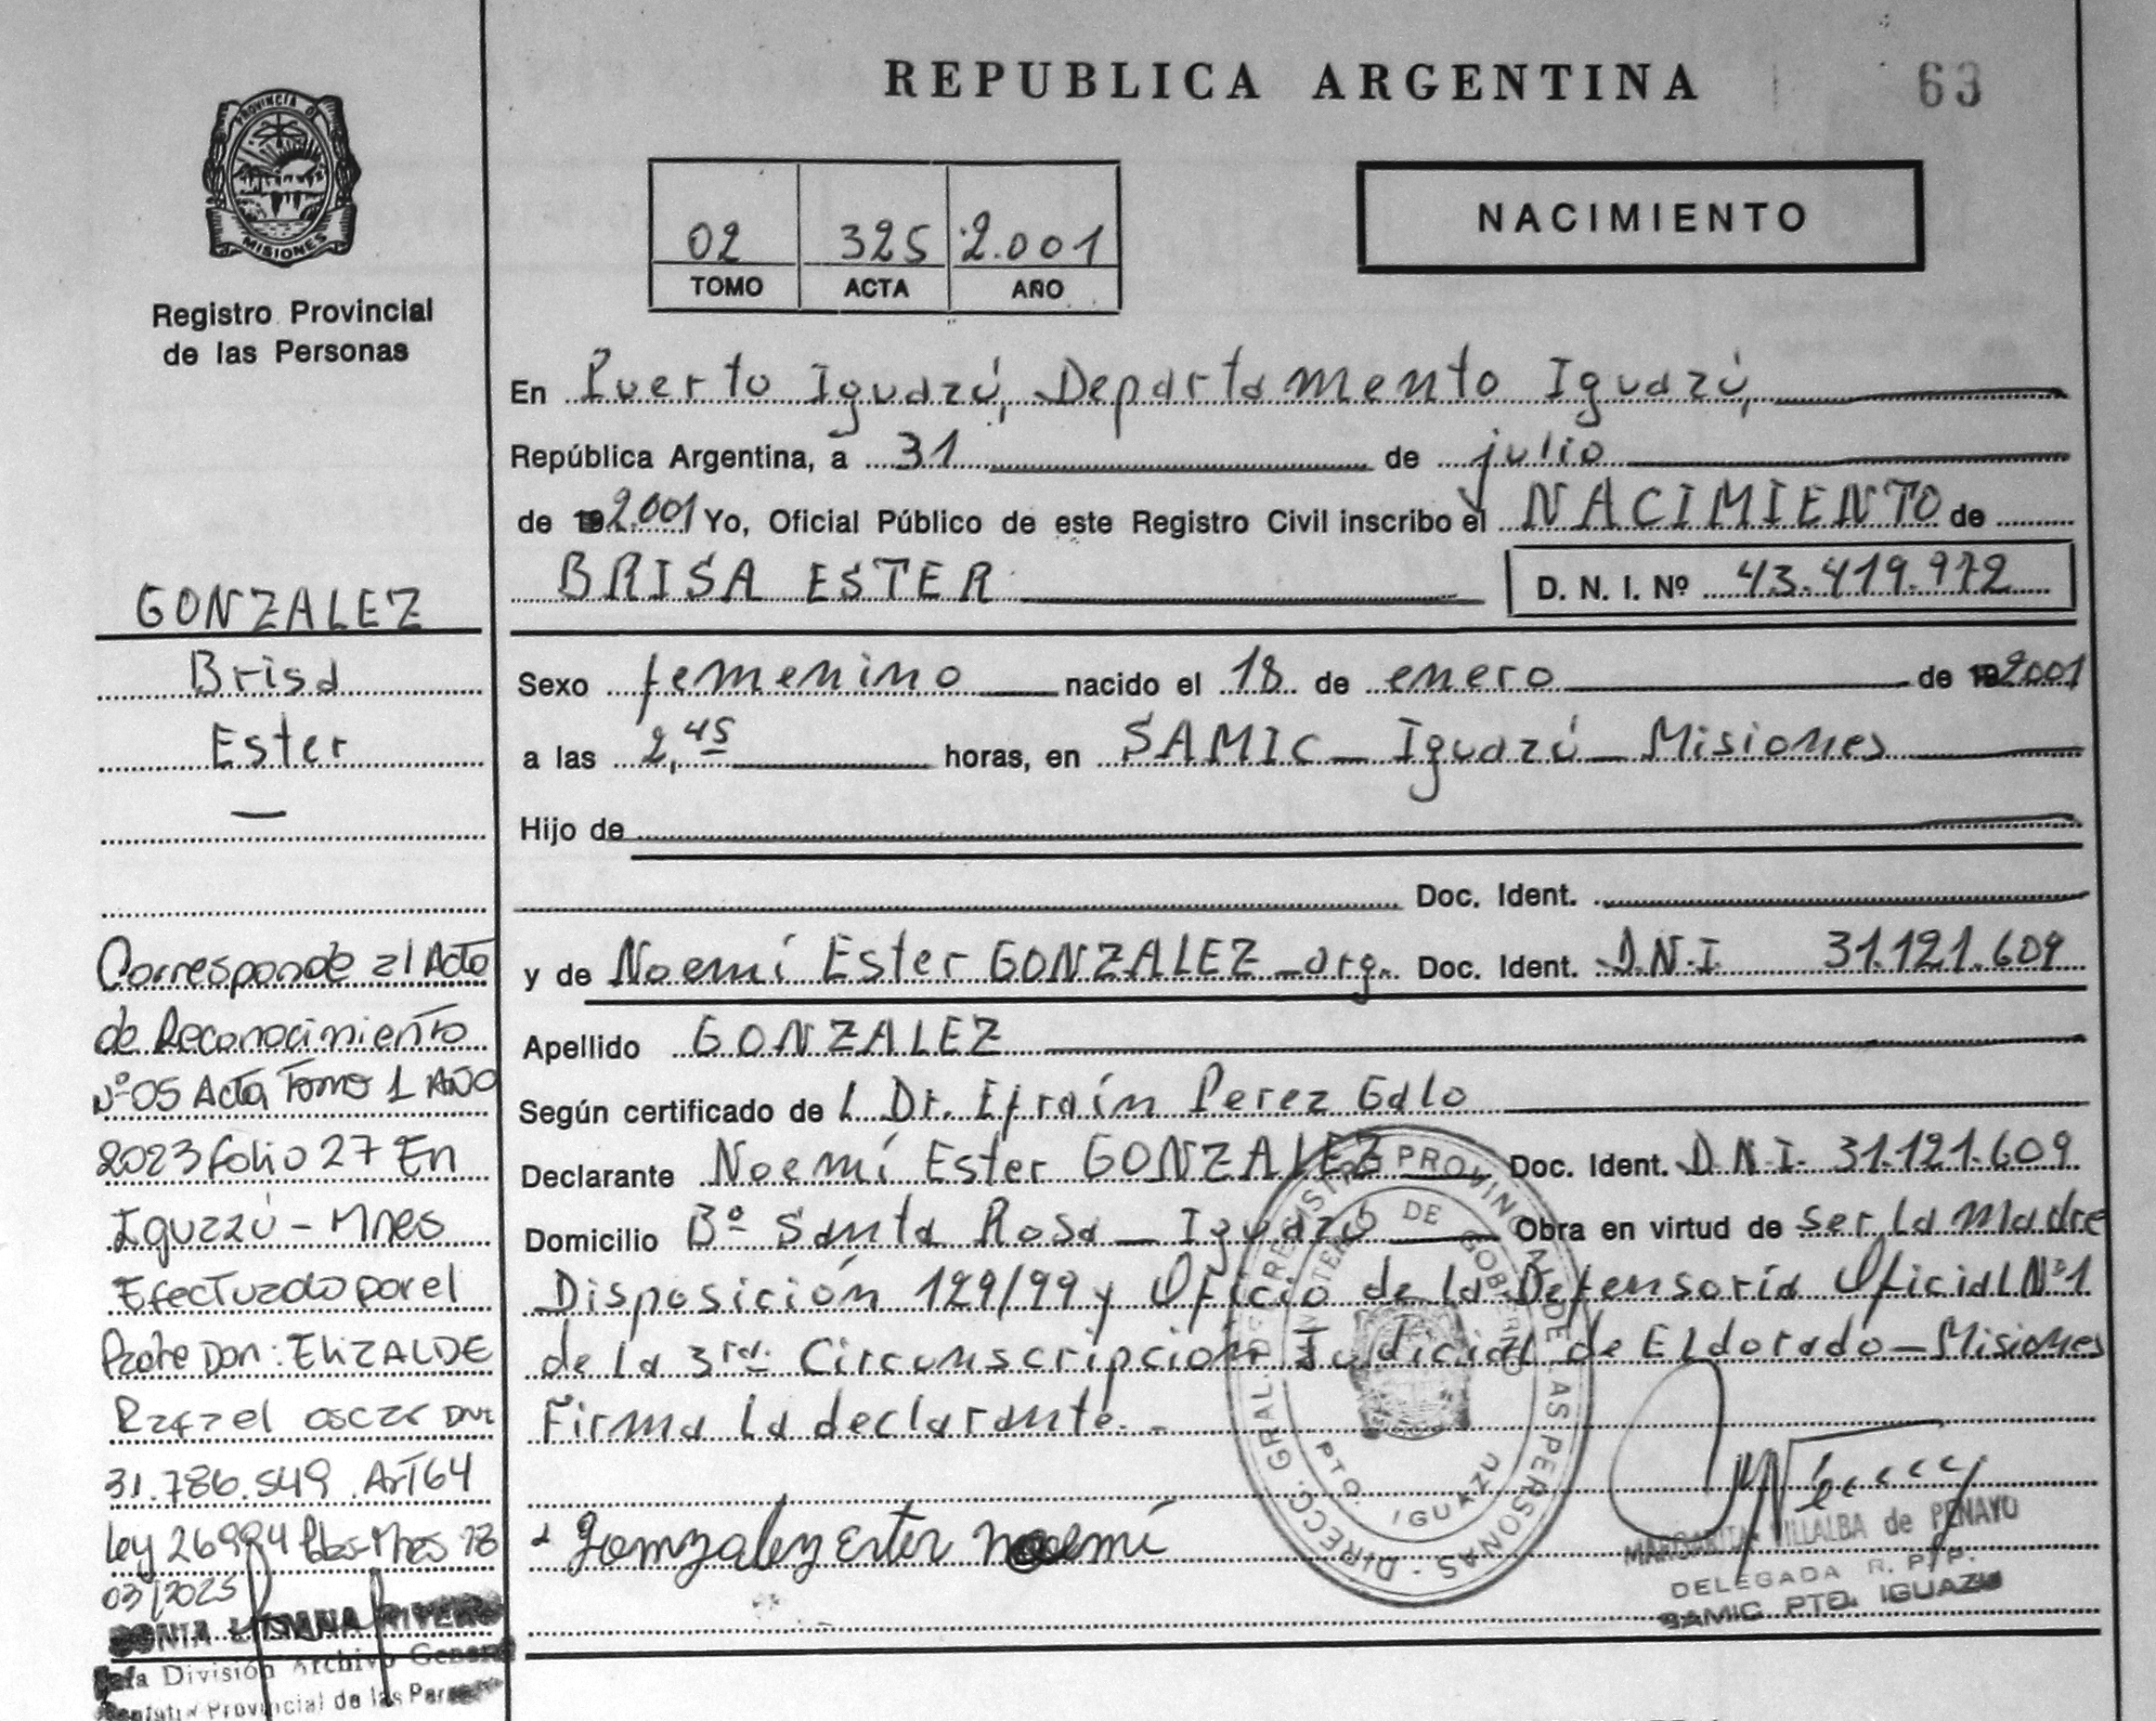 REPUBLICA ARGENTINA
63
PROVINCIA D
MISIONES
Registro Provincial
de las Personas
02 325 2.001
TOMO ACTA AÑO
NACIMIENTO
En Puerto Iguazú, Departamento Iguazú,
República Argentina, a 31 de julio
de 192.001 Yo, Oficial Público de este Registro Civil inscribo el NACIMIENTO de
BRISA ESTER D. N. I. Nº 43.419.972
GONZALEZ
Brisa
Ester
—
Sexo femenino nacido el 18 de enero de 192001
a las 2,45 horas, en SAMIC - Iguazú - Misiones
Hijo de
Doc. Ident.
y de Noemí Ester GONZALEZ - arg. Doc. Ident. D.N.I 31.121.609
Apellido GONZALEZ
Según certificado de l Dr. Efraín Perez Galo
Declarante Noemí Ester GONZALEZ Doc. Ident. D.N.I. 31.121.609
Domicilio Bº Santa Rosa - Iguazú Obra en virtud de ser la madre
Disposición 129/99 y Oficio de la Defensoría Oficial Nº1
de la 3ra. Circunscripción Judicial de Eldorado - Misiones
Firma la declarante. -
Gonzalez Ester Noemí
Corresponde al Acta
de Reconocimiento
Nº 05 Acta Tomo 1 AÑO
2023 folio 27 En
Iguazú - Mnes
Efectuado por el
Padre Don: ELIZALDE
Rafael Oscar DNI
31.786.549 . Art 64
Ley 26994
03/2025
Jefa División Archivo General
Provincial de las Personas
DIRECC. GRAL. DE REGISTRO PROVINCIAL DE LAS PERSONAS -
MINISTERIO DE GOBIERNO
PTO. IGUAZU
MARGARITA VILLALBA de PENAYO
DELEGADA R. P. P.
SAMIC PTO. IGUAZU